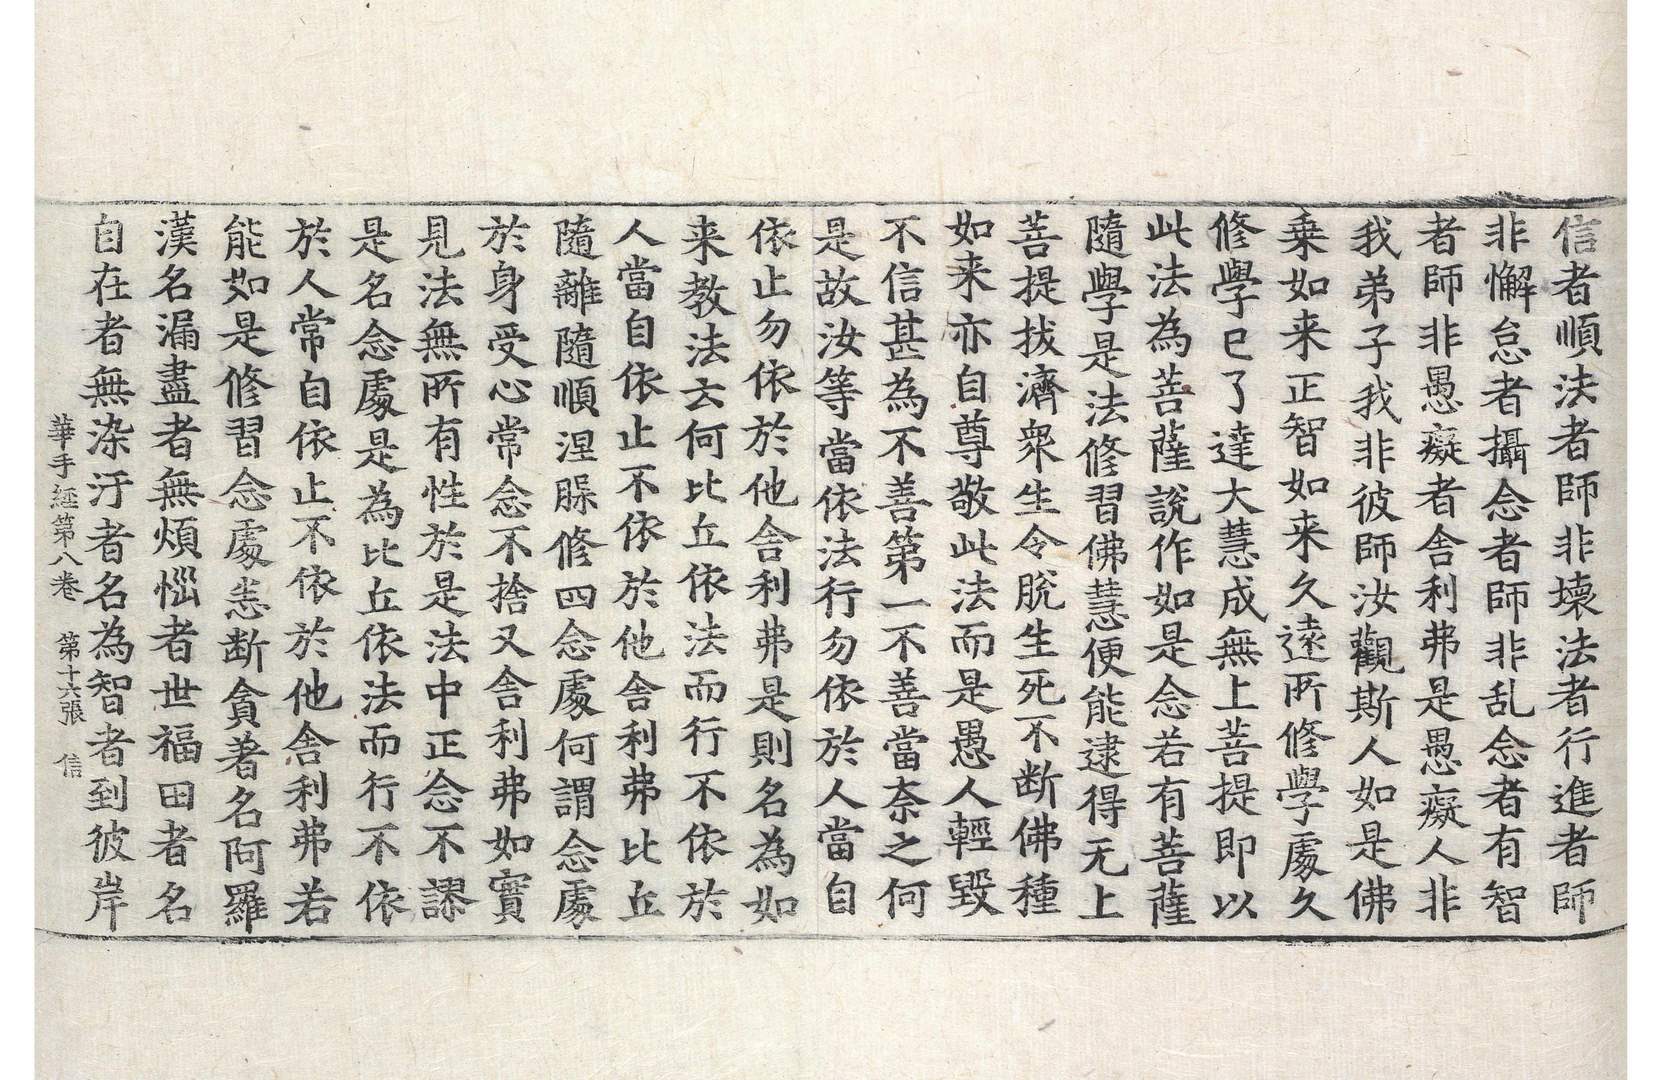 信者順法者師非壞法者行進者師
非懈怠者攝念者師非乱念者有智
者師非愚癡者舍利弗是愚癡人非
我弟子我非彼師汝觀斯人如是佛
乗如来正智如来久遠所修學處久
修學已了達大慧成無上菩提即以
此法為菩薩說作如是念若有菩薩
隨學是法修習佛慧便能逮得无上
菩提拔濟衆生令脫生死不断佛種
如来亦自尊敬此法而是愚人輕毀
不信甚為不善第一不善當柰之何
是故汝等當依法行勿依於人當自
依止勿依於他舍利弗是則名為如
来教法云何比丘依法而行不依於
人當自依止不依於他舍利弗比丘
隨離隨順涅槃修四念處何謂念處
於身受心常念不捨又舍利弗如實
見法無所有性於是法中正念不謬
是名念處是為比丘依法而行不依
於人常自依止不依於他舍利弗若
能如是修習念處恚断貪著名阿羅
漢名漏盡者無煩惱者世福田者名
自在者無染汙者名為智者到彼岸
華手經第八卷 第十六張 信